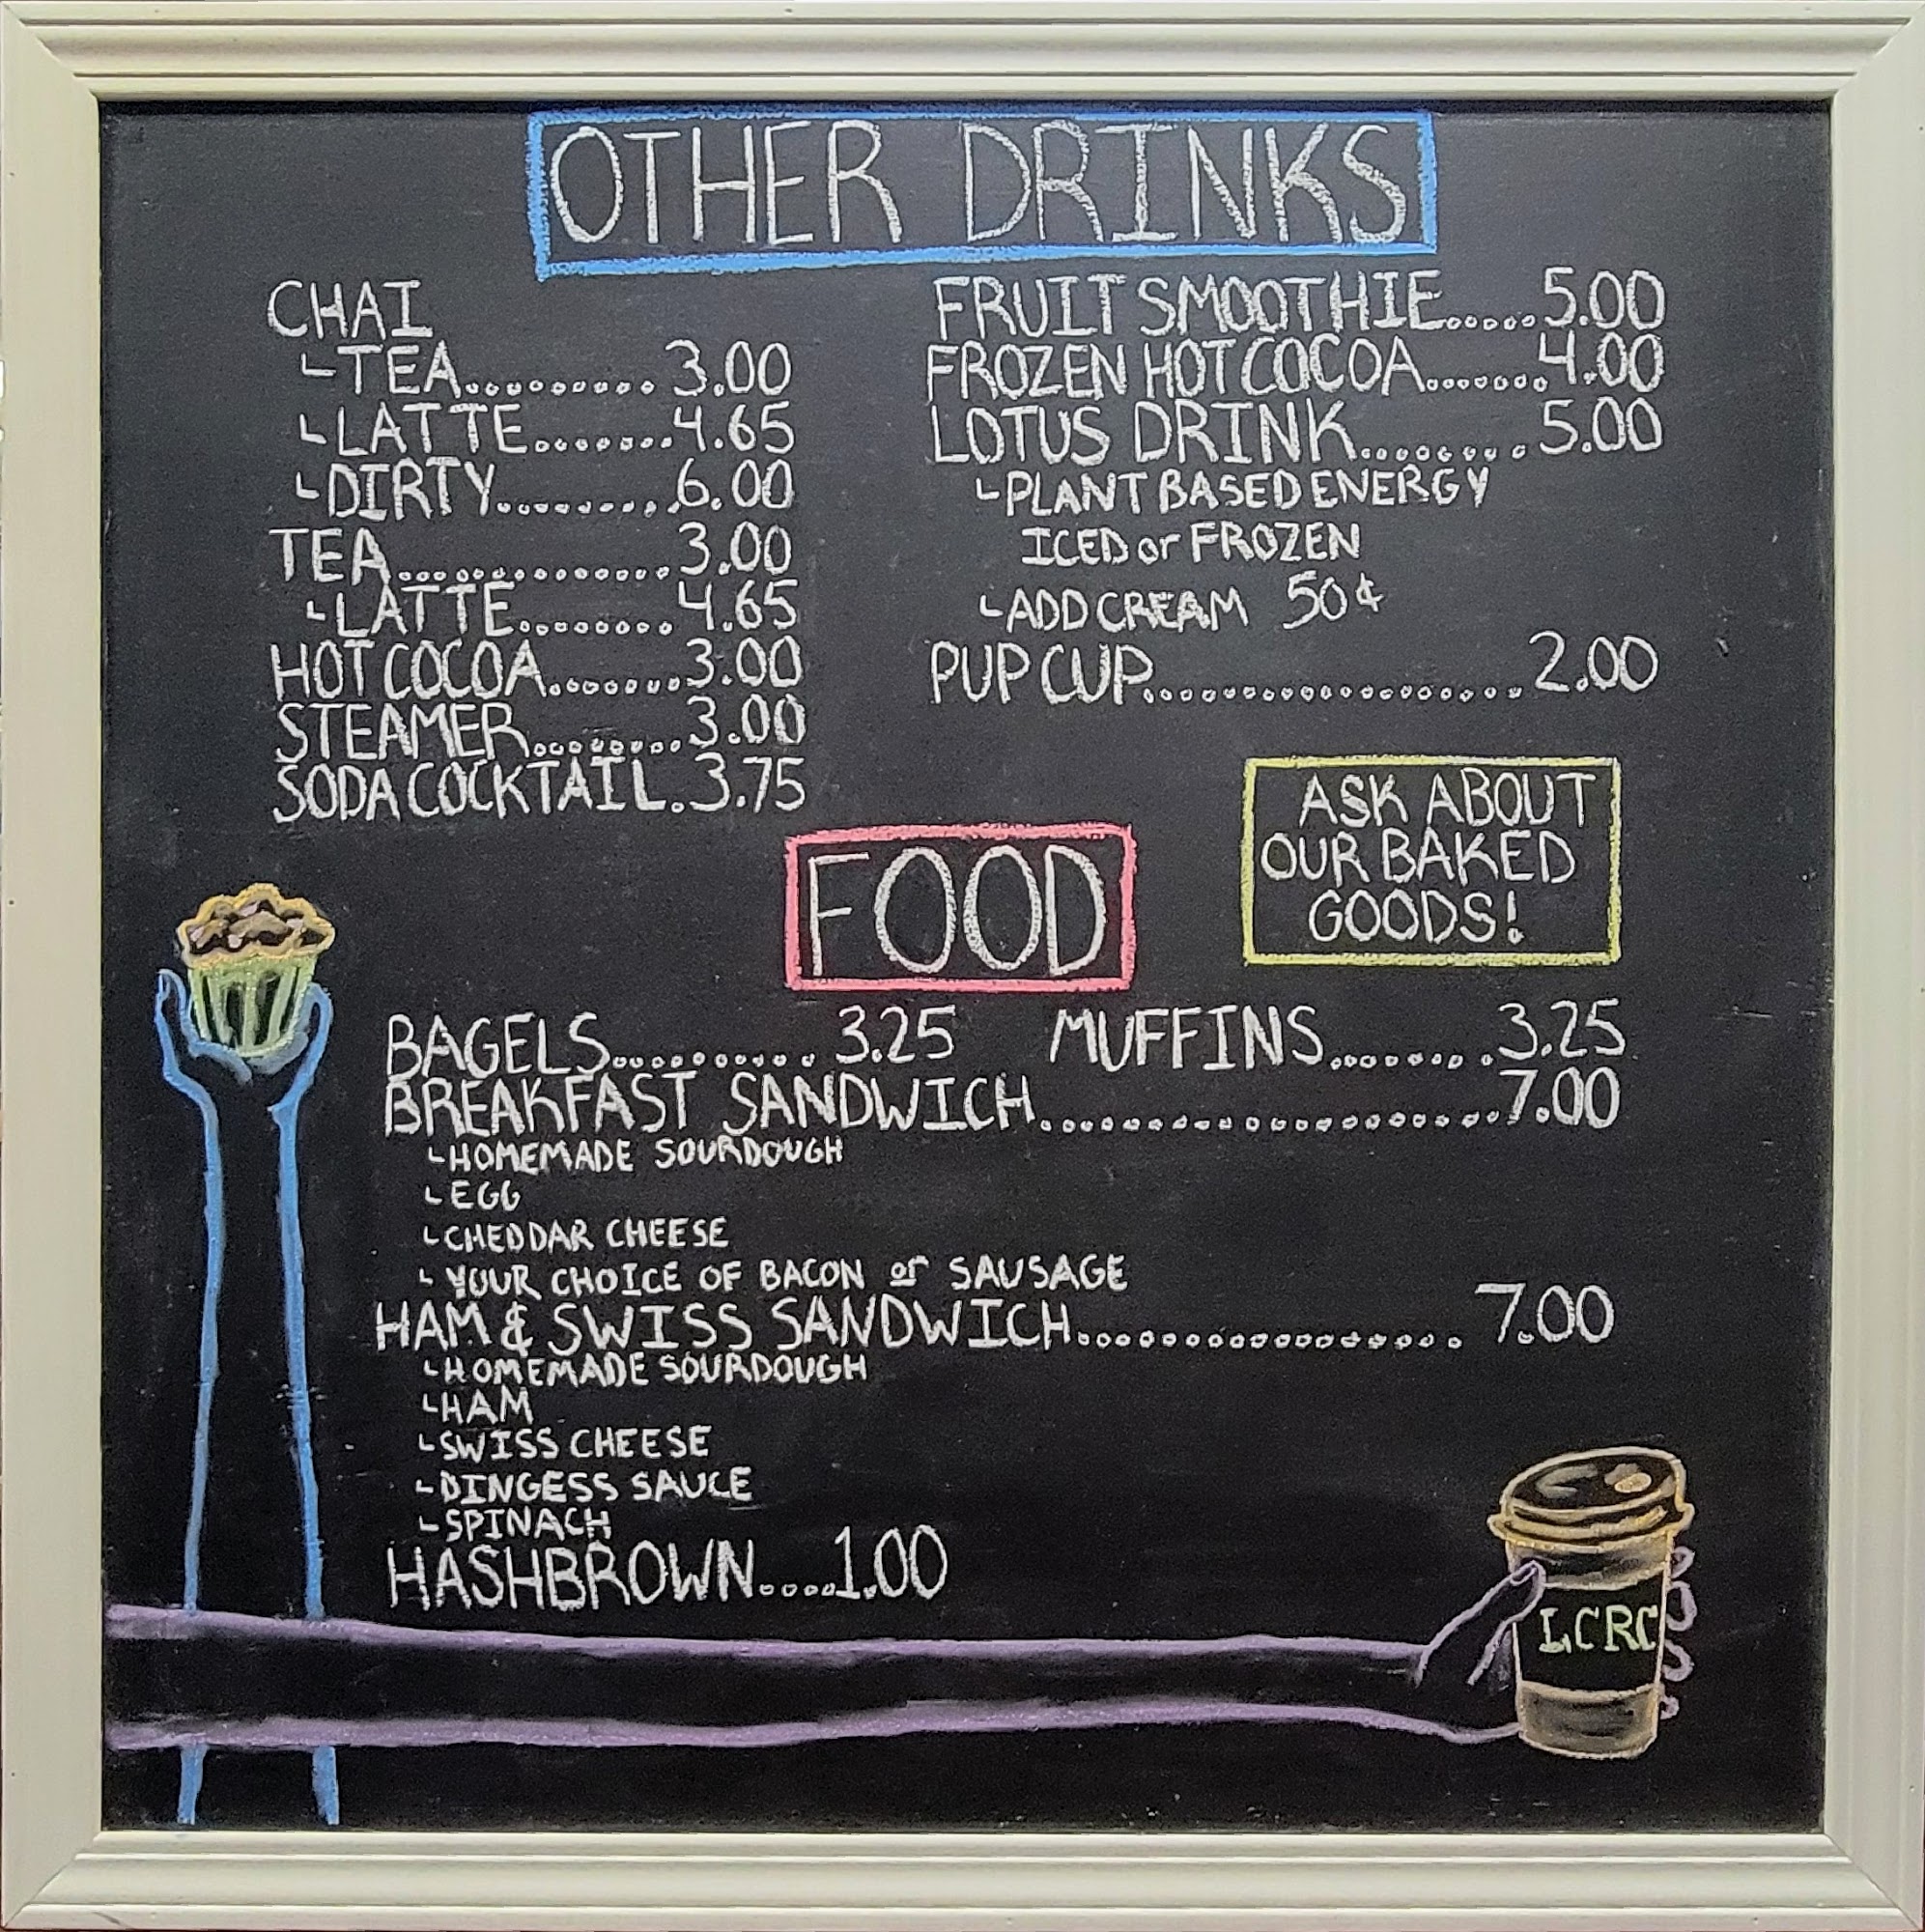 OTHER DRINKS
CHAI
TEA.......... 3.00
LATTE........4.65
DIRTY.......... 6.00
TEA............... 3.00
LATTE......... 4.65
HOT COCOA........3.00
STEAMER.........3.00
SODA COCKTAIL.3.75
FRUIT SMOOTHIE.....5.00
FROZEN HOT COCOA.......4.00
LOTUS DRINK.........5.00
PLANT BASED ENERGY
ICED or FROZEN
ADD CREAM 50¢
PUP CUP....................2.00
ASK ABOUT
OUR BAKED
GOODS!
FOOD
BAGELS.......... 3.25 MUFFINS........3.25
BREAKFAST SANDWICH.......................7.00
HOMEMADE SOURDOUGH
EGG
CHEDDAR CHEESE
YOUR CHOICE OF BACON or SAUSAGE
HAM & SWISS SANDWICH................... 7.00
HOMEMADE SOURDOUGH
HAM
SWISS CHEESE
DINGESS SAUCE
SPINACH
HASHBROWN....1.00
LCRC